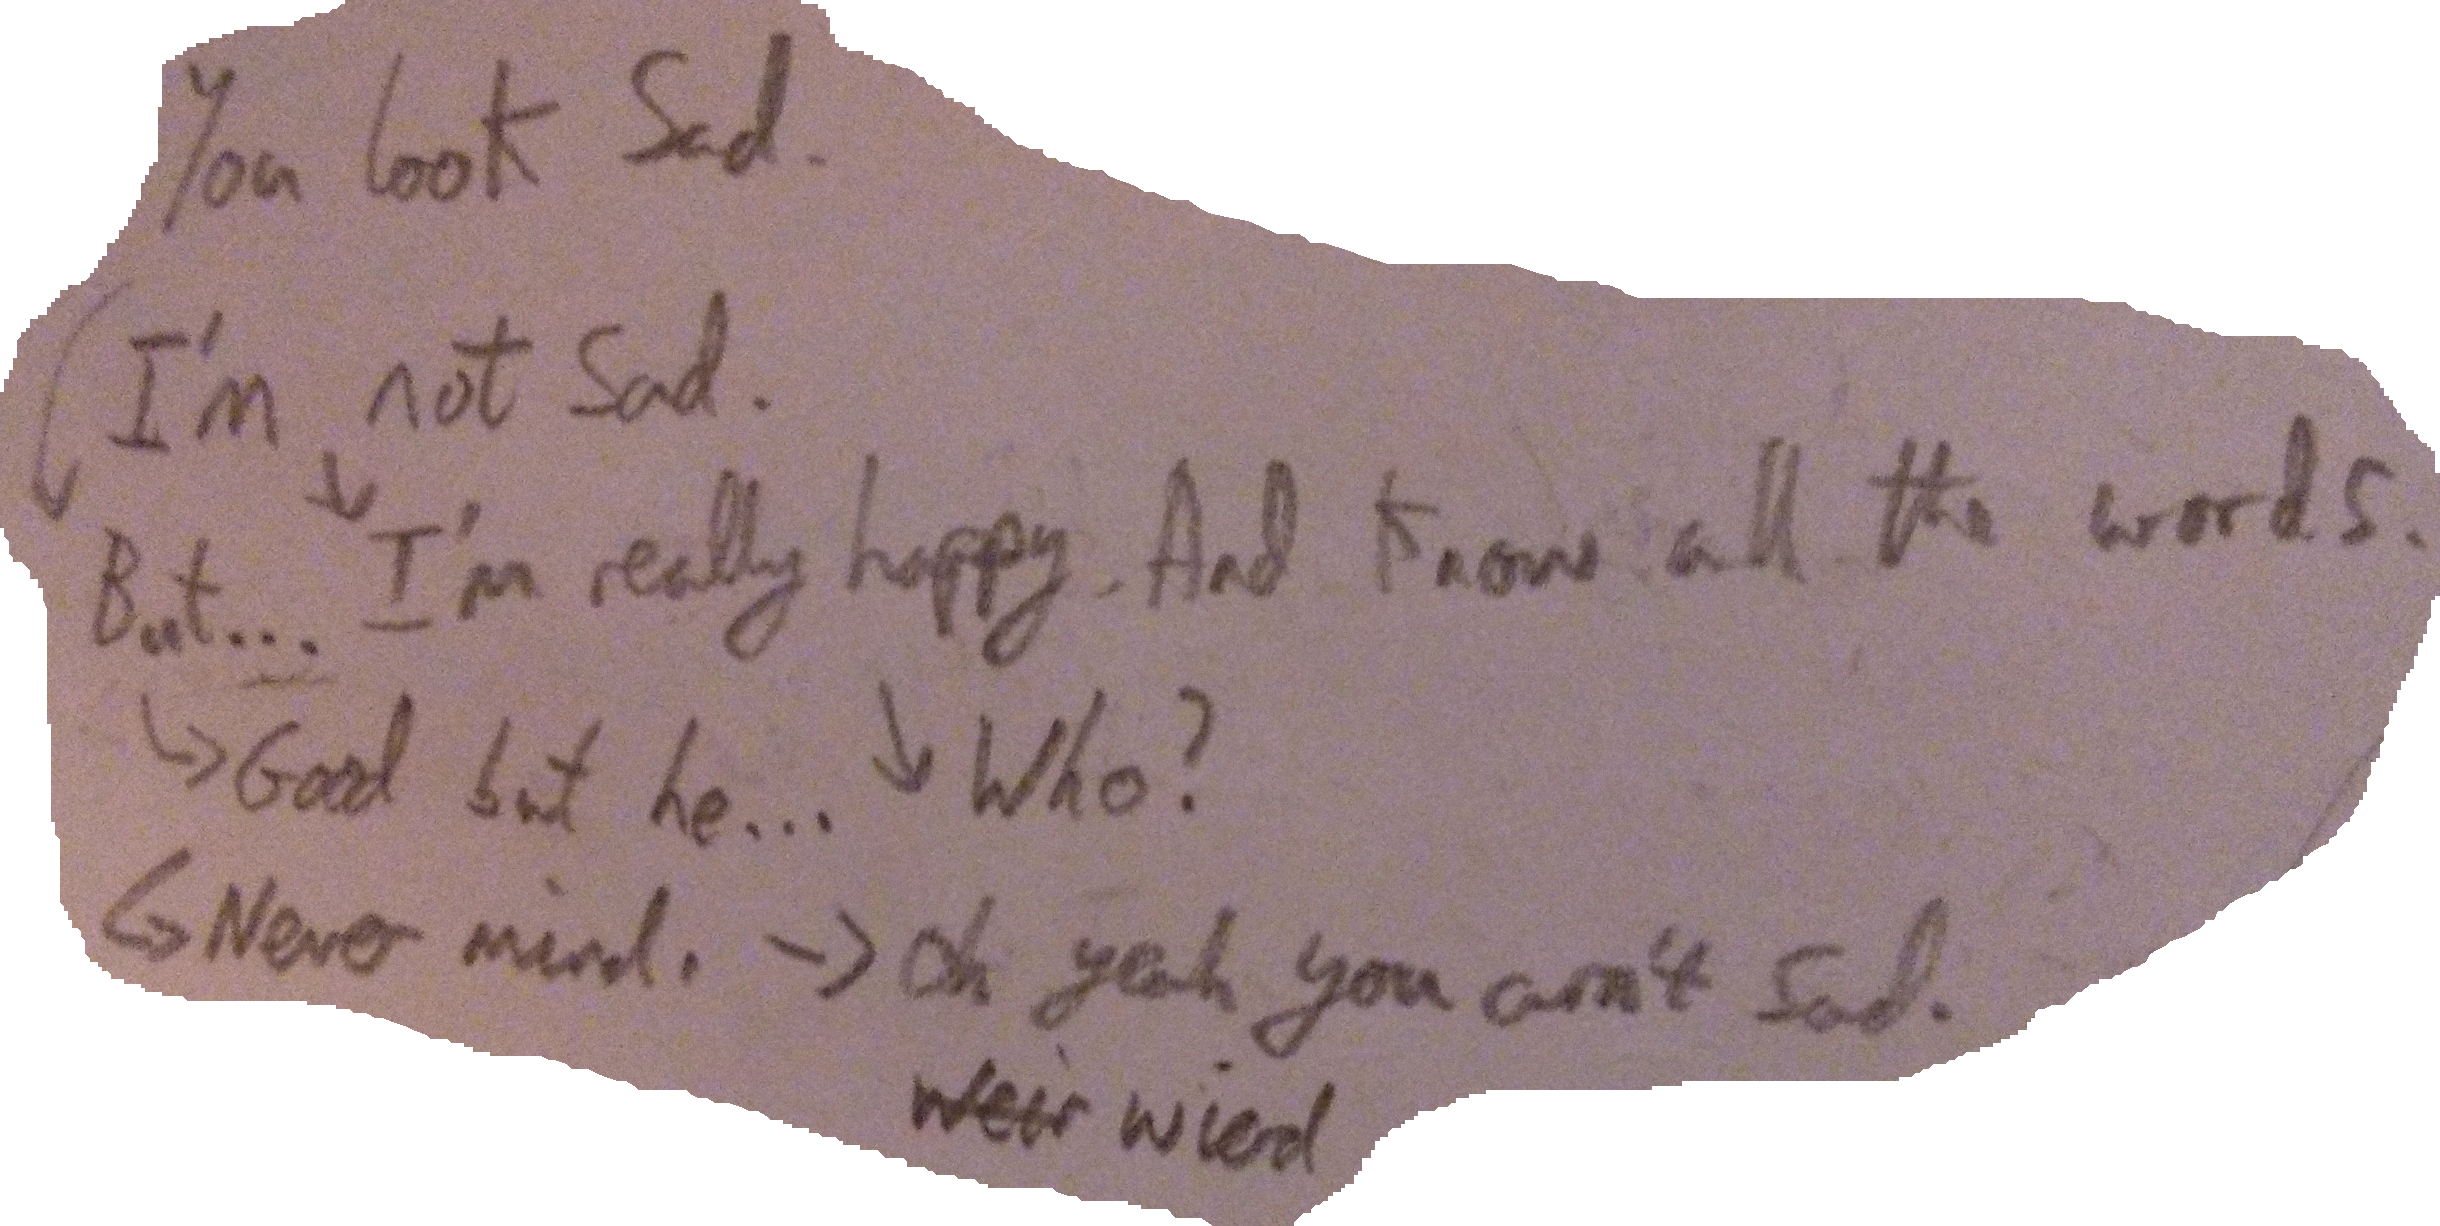 You look Sad.
I'm not Sad.
But... I'm really happy. And know all the words.
Good but he... Who?
Never mind. → Oh yeah you arn't sad.
weir wierd